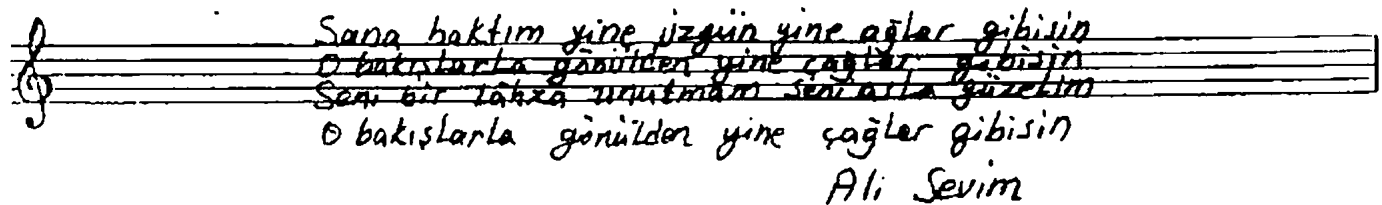 Sana baktım yine üzgün yine ağlar gibisin
O bakışlarla gönülden yine çağlar gibisin
Seni bir lâhza unutmam seni asla güzelim
O bakışlarla gönülden yine çağlar gibisin
Ali Sevim